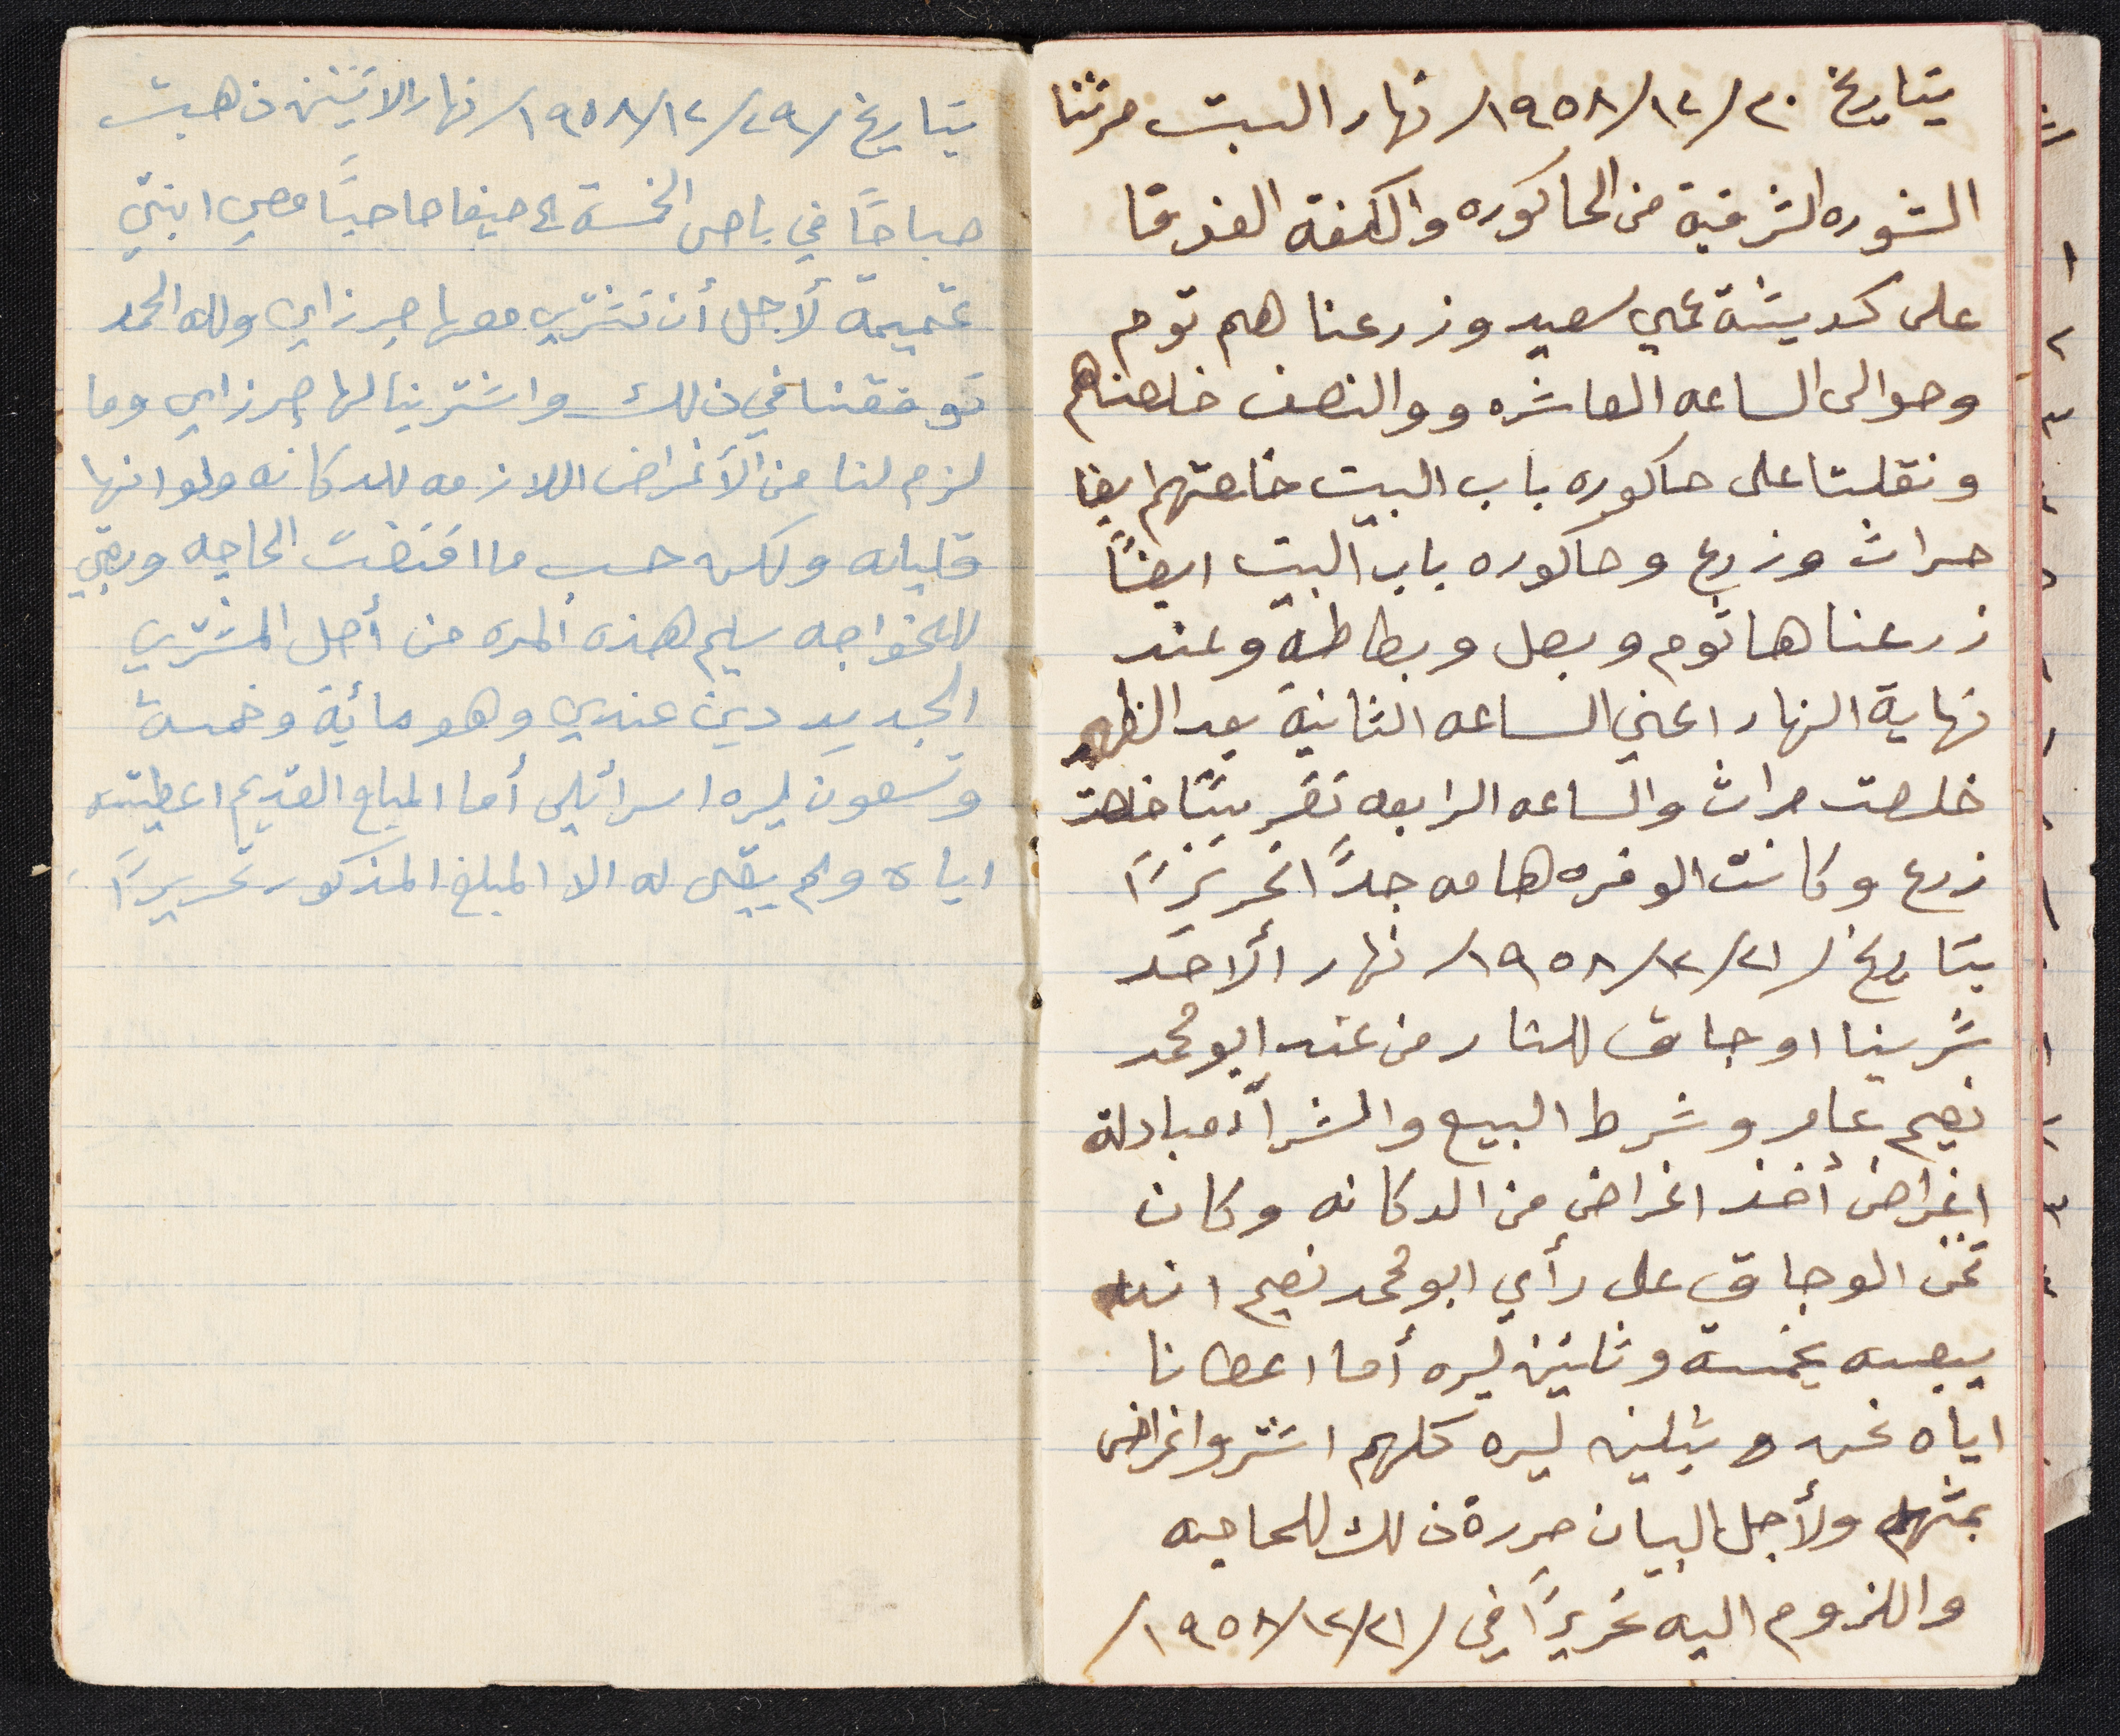 بتاريخ ٢٠/١٢/١٩٥٨/ نهار السبت حرثنا
الشوره الشرقية من الحاكوره والكفة الفوقا
على كديشة عمي سعيد وزرعناهم توم
وحوالى الساعه العاشره ووالنصف خلصناهم
ونقلنا على حاكوره باب البيت خلصتهم ايضا
حراث وزرع وحاكوره باب البيت ايضاً
زرعناها توم وبصل وبطاطه وعند
نهاية النهار اعني الساعه الثانية بعد الظهر
خلصت حراث والساعه الرابعه تقريبًا خلصت
زرع وكانت الوفره هامه جداً تحريرًا
بتاريخ /٢١/١٢/١٩٥٨/ نهار ألاحد
شرينا اوجاق للنار من عند ابو محمد
نعيم عامر وشرط البيع والشراء مبادلة
اغراض أخذ اغراض من الدكانه وكان
ثمن الوجاق على رأي ابو محمد نعيم انه
يبيعه بخمسة وثلثين ليره أما اعطانا
اياه ليره كلهم اشتروا اغراض
بمثهم ولأجل البيان حررة ذلك للحاجه
واللزوم اليه تحريرًا في /٢١/١٢/١٩٥٨/
بتاريخ /٢٩/١٢/١٩٥٨/ نهار الاثنين ذهبت
صباحًا في باص الخمسة الى حيفا صاحبًا معي ابنتي
لأجل أن تشتري معها جرزاي ولله الحمد
توفقنا في ذلك واشترينا لها جرزاي وما
لزم لنا من الأغراض اللازمه للدكانه ولو انها
قليله ولكن حسب ما اقتضت الحاجه وبقي
للخواجه سليم هذه المره من أجل المشتري
الجديد دين عندي وهو مائة وخمسة
وتسعون ليره اسرائيلي أما المبلغ القديم اعطيته
اياه ولم يبقى له الا المبلغ المذكور تحريرًا